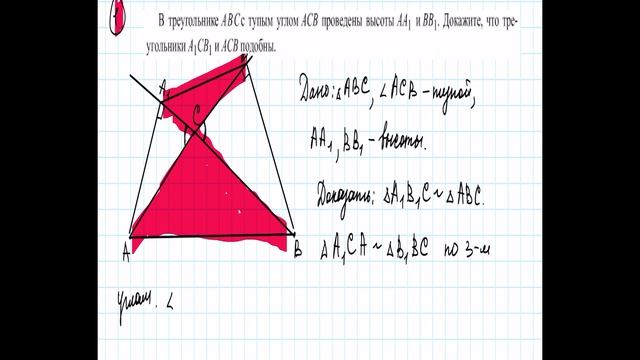 1
В треугольнике ABC с тупым углом ACB проведены высоты AA₁ и BB₁. Докажите, что тре-
угольники A₁CB₁ и ACB подобны.
Дано: △ABC, ∠ACB – тупой,
AA₁, BB₁ – высоты.
Доказать: △A₁B₁C ~ △ABC.
△A₁CA ~ △B₁BC по 3-м
углам. ∠
A₁
C
A
B